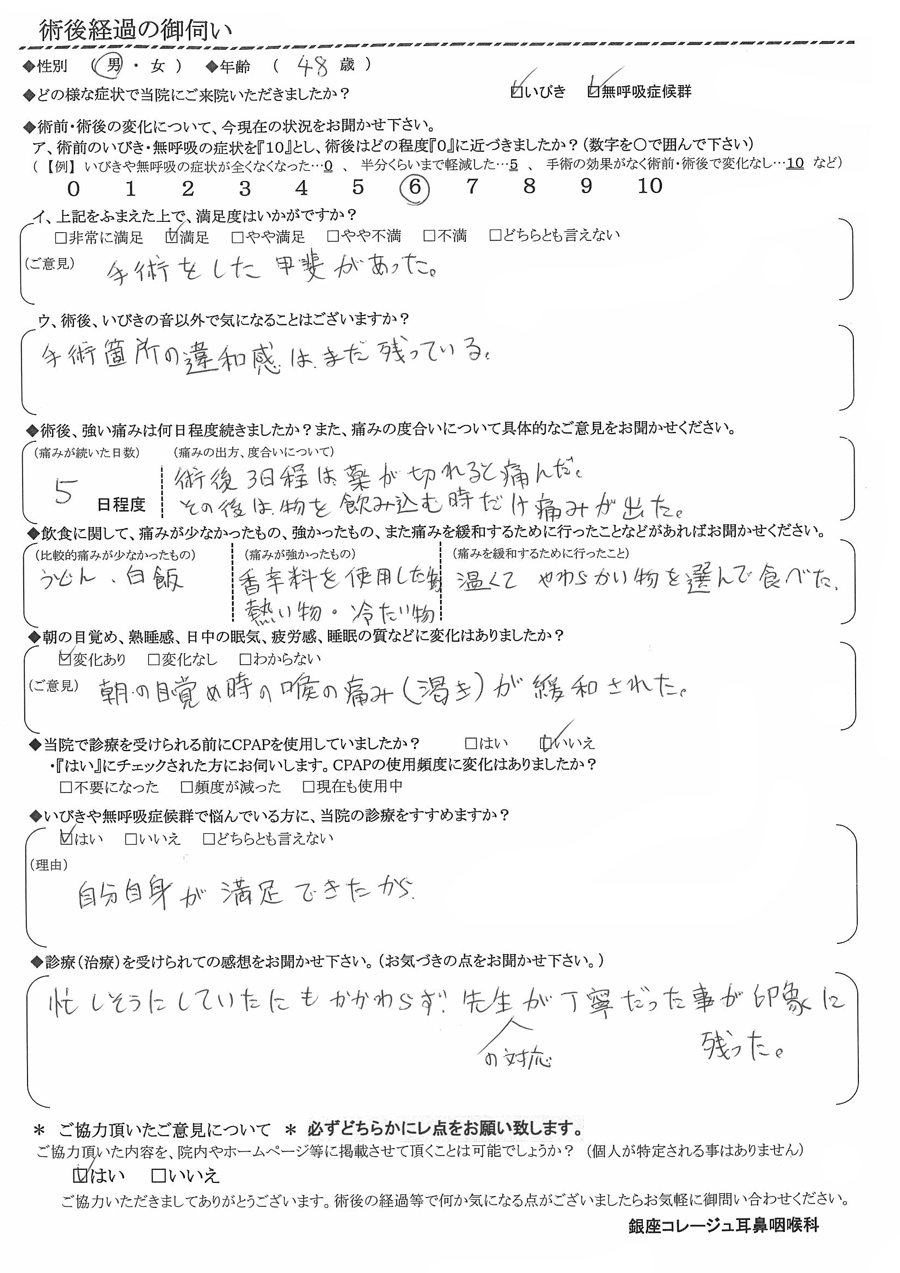 術後経過の御伺い
◆性別 (男・女) ◆年齢 (48歳)
◆どの様な症状で当院にご来院いただきましたか? ☑いびき ☑無呼吸症候群
◆術前・術後の変化について、今現在の状況をお聞かせ下さい。
ア、術前のいびき・無呼吸の症状を『10』とし、術後はどの程度『0』に近づきましたか?(数字を〇で囲んで下さい)
(【例】いびきや無呼吸の症状が全くなくなった…0 、 半分くらいまで軽減した…5 、 手術の効果がなく術前・術後で変化なし…10 など)
0 1 2 3 4 5 6 7 8 9 10
イ、上記をふまえた上で、満足度はいかがですか?
□非常に満足 ☑満足 □やや満足 □やや不満 □不満 □どちらとも言えない
(ご意見) 手術をした甲斐があった。
ウ、術後、いびきの音以外で気になることはございますか?
手術箇所の違和感は、まだ残っている。
◆術後、強い痛みは何日程度続きましたか?また、痛みの度合いについて具体的なご意見をお聞かせください。
(痛みが続いた日数) (痛みの出方、度合いについて)
術後3日程は薬が切れると痛んだ。
5 日程度 その後は、物を飲み込む時だけ痛みが出た。
◆飲食に関して、痛みが少なかったもの、強かったもの、また痛みを緩和するために行ったことなどがあればお聞かせください。
(比較的痛みが少なかったもの) (痛みが強かったもの) (痛みを緩和するために行ったこと)
うどん、白飯 香辛料を使用した物 温くて やわらかい物を選んで食べた。
熱い物・冷たい物
◆朝の目覚め、熟睡感、日中の眠気、疲労感、睡眠の質などに変化はありましたか?
☑変化あり □変化なし □わからない
(ご意見) 朝の目覚め時の喉の痛み(渇き)が緩和された。
◆当院で診療を受けられる前にCPAPを使用していましたか? □はい ☑いいえ
・『はい』にチェックされた方にお伺いします。CPAPの使用頻度に変化はありましたか?
□不要になった □頻度が減った □現在も使用中
◆いびきや無呼吸症候群で悩んでいる方に、当院の診療をすすめますか?
☑はい □いいえ □どちらとも言えない
(理由)
自分自身が満足できたから。
◆診療(治療)を受けられての感想をお聞かせ下さい。(お気づきの点をお聞かせ下さい。)
忙しそうにしていたにもかかわらず、先生が丁寧だった事が印象に
の対応 残った。
* ご協力頂いたご意見について * 必ずどちらかにレ点をお願い致します。
ご協力頂いた内容を、院内やホームページ等に掲載させて頂くことは可能でしょうか? (個人が特定される事はありません)
☑はい □いいえ
ご協力いただきましてありがとうございます。術後の経過等で何か気になる点がございましたらお気軽に御問い合わせください。
銀座コレージュ耳鼻咽喉科